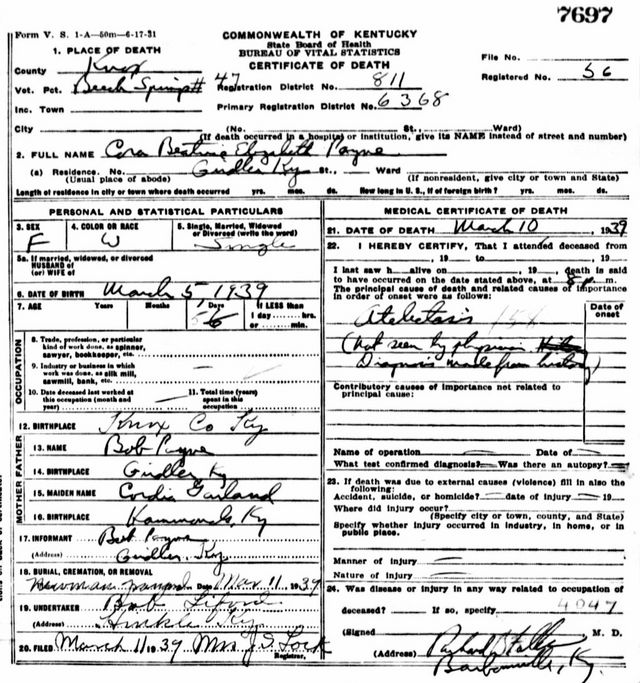 7697
Form V. S. 1-A—50m—6-17-31
COMMONWEALTH OF KENTUCKY
State Board of Health
BUREAU OF VITAL STATISTICS
CERTIFICATE OF DEATH
1. PLACE OF DEATH
County Knox
Vot. Pct. Beech Springs # 47
Inc. Town
Registration District No. 811
Primary Registration District No. 6368
File No.
Registered No. 56
City (No. St., Ward)
(If death occurred in a hospital or institution, give its NAME instead of street and number)
2. FULL NAME Cora Beatrice Elizabeth Payne
(a) Residence. No. Girdler Ky St., Ward
(Usual place of abode) (If nonresident, give city or town and State)
Length of residence in city or town where death occurred yrs. mos. ds. How long in U. S., if of foreign birth? yrs. mos. ds.
PERSONAL AND STATISTICAL PARTICULARS
3. SEX F
4. COLOR OR RACE W
5. Single, Married, Widowed or Divorced (write the word) Single
5a. If married, widowed, or divorced
HUSBAND of
(or) WIFE of
6. DATE OF BIRTH March 5 1939
7. AGE Years Months Days If LESS than
1 day hrs.
or min.
OCCUPATION
8. Trade, profession, or particular
kind of work done, as spinner,
sawyer, bookkeeper, etc.
9. Industry or business in which
work was done, as silk mill,
sawmill, bank, etc.
10. Date deceased last worked at
this occupation (month and
year)
11. Total time (years)
spent in this
occupation
12. BIRTHPLACE Knox Co Ky
FATHER
13. NAME Bob Payne
14. BIRTHPLACE Girdler Ky
MOTHER
15. MAIDEN NAME Cordia Garland
16. BIRTHPLACE Ky
17. INFORMANT Bob Payne
(Address) Girdler, Ky
18. BURIAL, CREMATION, OR REMOVAL
Date Mar 11 1939
19. UNDERTAKER Bob
(Address) Hinkle Ky
20. FILED March 11 39 Mrs
Registrar.
MEDICAL CERTIFICATE OF DEATH
21. DATE OF DEATH March 10, 1939
22. I HEREBY CERTIFY, That I attended deceased from
, 19 to , 19
I last saw h alive on , 19 , death is said
to have occurred on the date stated above, at 8 p. m.
The principal cause of death and related causes of importance
in order of onset were as follows:
Date of
onset
Atelectasis
(Not seen by physician
Diagnosis made from history)
Contributory causes of importance not related to
principal cause:
Name of operation Date of
What test confirmed diagnosis? Was there an autopsy?
23. If death was due to external causes (violence) fill in also the
following:
Accident, suicide, or homicide? date of injury 19
Where did injury occur?
(Specify city or town, county, and State)
Specify whether injury occurred in industry, in home, or in
public place.
Manner of injury
Nature of injury
24. Was disease or injury in any way related to occupation of
deceased? If so, specify 4047
(Signed) M. D.
(Address) Barbourville, Ky.